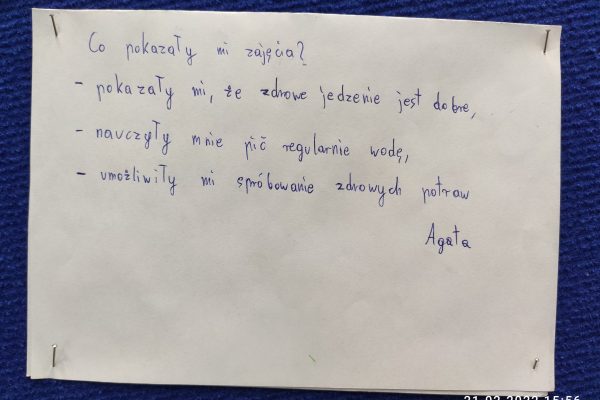 Co pokazały mi zajęcia?
- pokazały mi, że zdrowe jedzenie jest dobre,
- nauczyły mnie pić regularnie wodę,
- umożliwiły mi spróbowanie zdrowych potraw
Agata